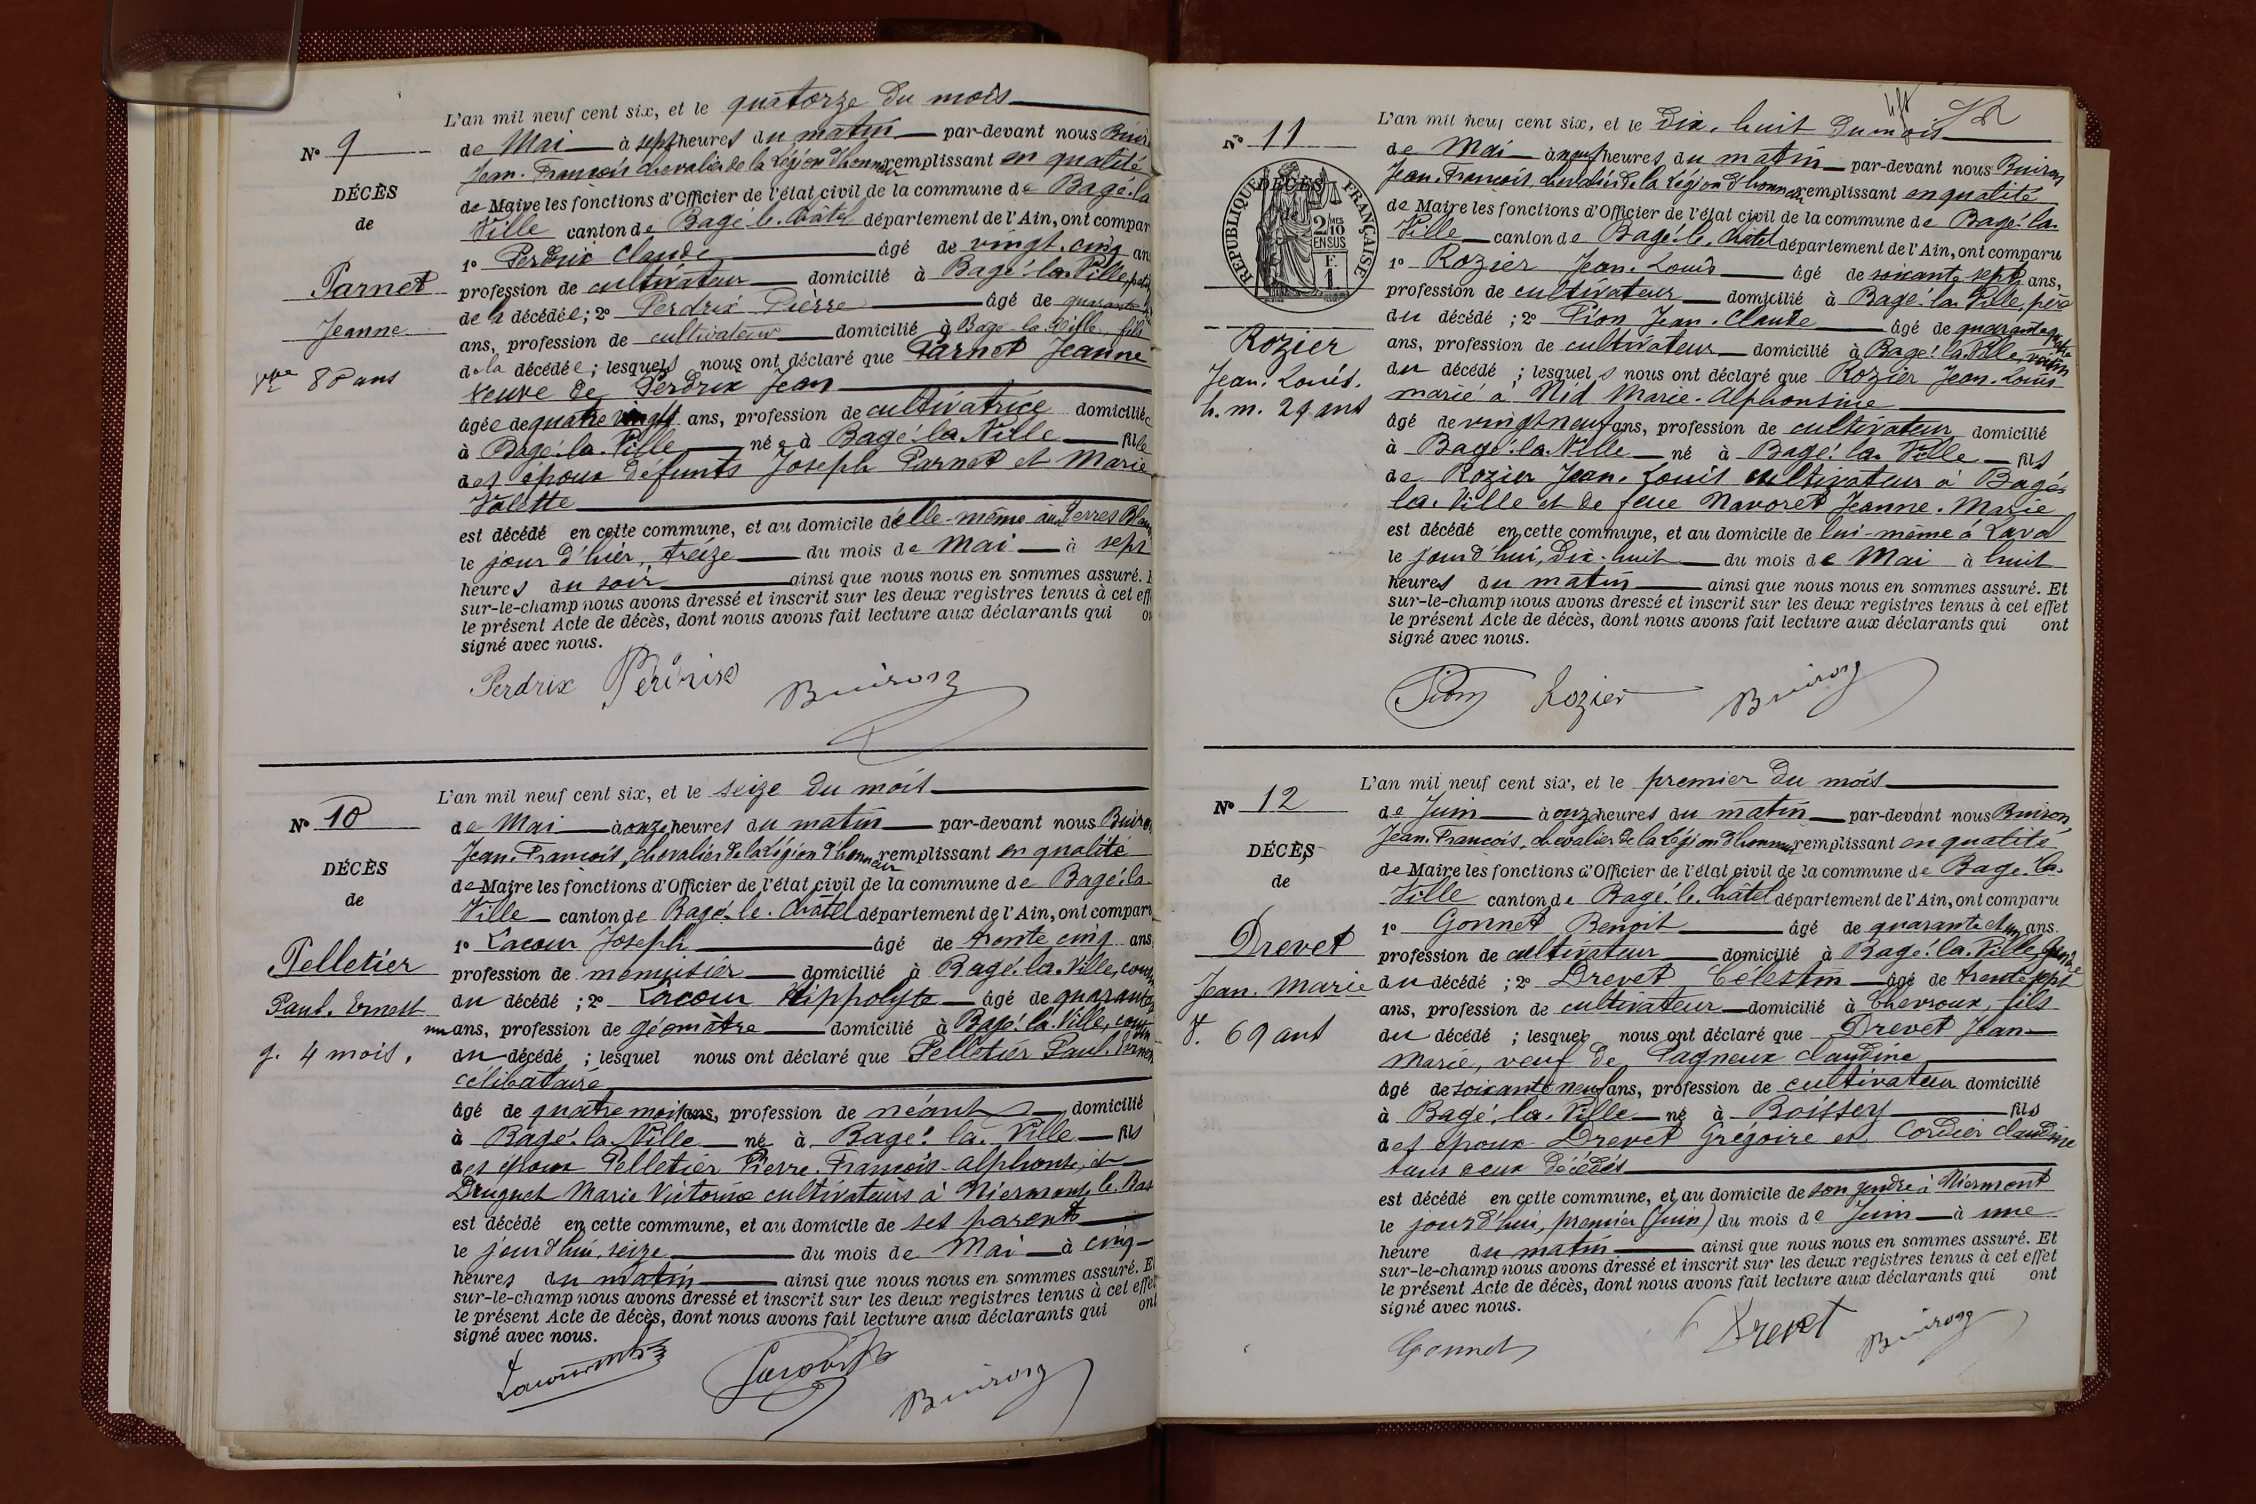 L'an mil neuf cent six, et le quatorze du mois
No 9
de Mai à sept heures du matin par-devant nous Buir
Jean-François chevalier de la Légion d'honneur remplissant en qualité
DÉCÈS
de Maire les fonctions d'Officier de l'état civil de la commune de Bagé-la-
de
Ville canton de Bagé-le-Châtel département de l'Ain, ont compar
1o Perdrix Claude âgé de vingt-cinq an
Parnet
profession de cultivateur domicilié à Bagé-la-Ville,
de la décédée; 2o Perdrix Pierre âgé de quarante
Jeanne
ans, profession de cultivateur domicilié à Bagé-la-Ville fils
de la décédée; lesquels nous ont déclaré que Parnet Jeanne
Vve 80 ans
veuve de Perdrix Jean
âgée de quatre vingts ans, profession de cultivatrice domiciliée
à Bagé-la-Ville née à Bagé-la-Ville fille
des époux defunts Joseph Parnet et Marie
Valette
est décédé en cette commune, et au domicile d'elle-même aux Terres
le jour d'hier, treize du mois de Mai à sept
heures du soir ainsi que nous nous en sommes assuré.
sur-le-champ nous avons dressé et inscrit sur les deux registres tenus à cet eff
le présent Acte de décès, dont nous avons fait lecture aux déclarants qui
signé avec nous.
Perdrix Perdrix Buiron
L'an mil neuf cent six, et le seize du mois
No 10
de Mai à onze heures du matin par-devant nous Buiro
Jean-François, chevalier de la Légion d'honneur remplissant en qualité
DÉCÈS
de Maire les fonctions d'Officier de l'état civil de la commune de Bagé-la-
de
Ville canton de Bagé-le-Châtel département de l'Ain, ont comparu
1o Lacour Joseph âgé de trente cinq ans
Pelletier
profession de menuisier domicilié à Bagé-la-Ville, cousin
du décédé; 2o Lacour Hippolyte âgé de quarante
Paul-Ernest
un ans, profession de géomètre domicilié à Bagé-la-Ville, cousin
g. 4 mois.
du décédé; lesquel nous ont déclaré que Pelletier Paul-Ernest
célibataire
âgé de quatre mois ans, profession de néant domicilié
à Bagé-la-Ville né à Bagé-la-Ville fils
des époux Pelletier Pierre-François-Alphonse, et
Druguet Marie Victorine cultivateurs à Niermont-le-Bas
est décédé en cette commune, et au domicile de ses parents
le jourd'hui, seize du mois de Mai à cinq
heures du matin ainsi que nous nous en sommes assuré. E
sur-le-champ nous avons dressé et inscrit sur les deux registres tenus à cet effet
le présent Acte de décès, dont nous avons fait lecture aux déclarants qui ont
signé avec nous.
Buiron
L'an mil neuf cent six, et le dix-huit du mois
No 11
de Mai à neuf heures du matin par-devant nous Buiron
Jean-François, chevalier de la Légion d'honneur remplissant en qualité
DÉCÈS
de Maire les fonctions d'Officier de l'état civil de la commune de Bagé-la-
de
RÉPUBLIQUE FRANÇAISE
2/10 MES
EN SUS
F.
1
Ville canton de Bagé-le-Châtel département de l'Ain, ont comparu
1o Rozier Jean-Louis âgé de soixante sept ans,
profession de cultivateur domicilié à Bagé-la-Ville, père
du décédé; 2o Pion Jean-Claude âgé de quarante quatre
Rozier
ans, profession de cultivateur domicilié à Bagé-la-Ville, voisin
Jean-Louis.
du décédé; lesquels nous ont déclaré que Rozier Jean-Louis
h. m. 29 ans
marié à Nid Marie-Alphonsine
âgé de vingt neuf ans, profession de cultivateur domicilié
à Bagé-la-Ville né à Bagé-la-Ville fils
de Rozier Jean-Louis cultivateur à Bagé-
la-Ville et de feue Navoret Jeanne-Marie
est décédé en cette commune, et au domicile de lui-même à Laval
le jourd'hui, dix-huit du mois de Mai à huit
heures du matin ainsi que nous nous en sommes assuré. Et
sur-le-champ nous avons dressé et inscrit sur les deux registres tenus à cet effet
le présent Acte de décès, dont nous avons fait lecture aux déclarants qui ont
signé avec nous.
Pion Rozier Buiron
L'an mil neuf cent six, et le premier du mois
No 12
de Juin à onze heures du matin par-devant nous Buiron,
Jean-François, chevalier de la Légion d'honneur remplissant en qualité
DÉCÈS
de Maire les fonctions d'Officier de l'état civil de la commune de Bagé-la-
de
Ville canton de Bagé-le-Châtel département de l'Ain, ont comparu
1o Gonnet Benoit âgé de quarante et un ans.
Drevet
profession de cultivateur domicilié à Bagé-la-Ville, gendre
Jean-Marie
du décédé; 2o Drevet Célestin âgé de trente sept
ans, profession de cultivateur domicilié à Chevroux, fils
V. 69 ans
du décédé; lesquels nous ont déclaré que Drevet Jean-
Marie, veuf de Pagneux Claudine
âgé de soixante neuf ans, profession de cultivateur domicilié
à Bagé-la-Ville né à Boissey fils
des époux Drevet Grégoire et Cordier Claudine
tous deux décédés
est décédé en cette commune, et au domicile de son gendre à Niermont
le jourd'hui, premier (Juin) du mois de Juin à une
heure du matin ainsi que nous nous en sommes assuré. Et
sur-le-champ nous avons dressé et inscrit sur les deux registres tenus à cet effet
le présent Acte de décès, dont nous avons fait lecture aux déclarants qui ont
signé avec nous.
Gonnet Drevet Buiron